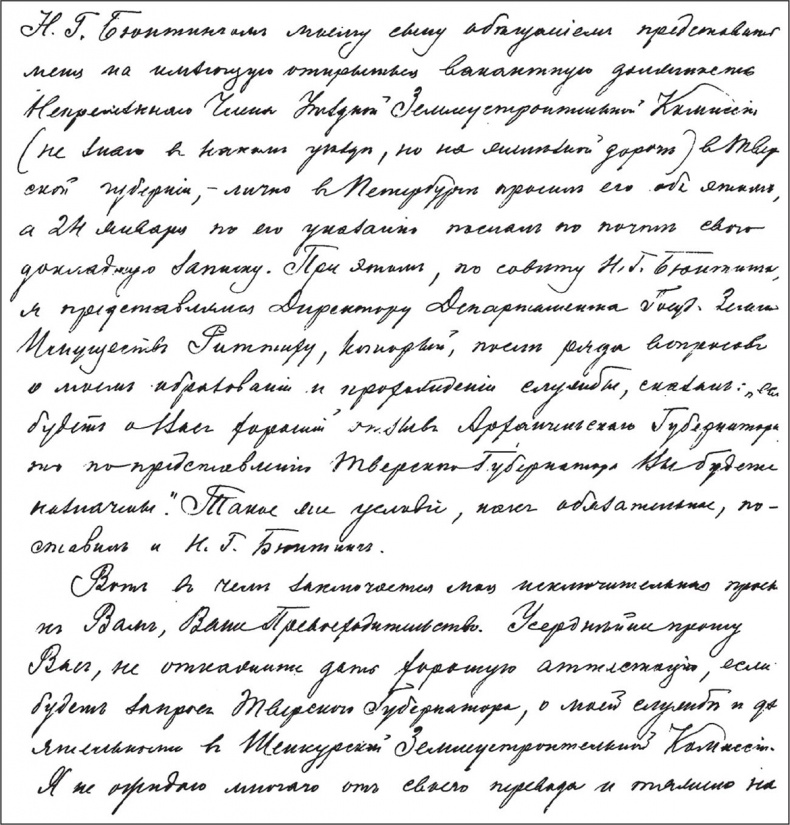 Н. Г. Бюнтингомъ моему сыну обѣщаніемъ представить
меня на имѣющую открыться вакантную должность
Непремѣннаго Члена Уѣздной Землеустроительной Комиссіи
(не знаю в какомъ уѣздѣ, но на желѣзной дорогѣ) в Твер
ской губерніи, - лично в Петербургѣ просилъ его объ этомъ,
а 24 января по его указанію послалъ по почтѣ свою
докладную записку. При этомъ, по совѣту Н. Г. Бюнтинга,
я представлялся Директору Департамента Госуд. Земел.
Имуществъ Риттиху, который, послѣ ряда вопросовъ
о моемъ образованіи и прохожденіи службы, сказалъ: „если
будетъ о Васъ хорошій отзывъ Архангельскаго Губернатора
то по представленію Тверского Губернатора Вы будете
назначены". Такое же условіе, какъ обязательное, по-
ставилъ и Н. Г. Бюнтингъ.
Вотъ в чемъ заключается моя исключительная прось
къ Вамъ, Ваше Превосходительство. Усерднѣйше прошу
Васъ, не откажите дать хорошую аттестацію, если
будетъ запросъ Тверского Губернатора, о моей службѣ и дѣ
ятельности в Шенкурской Землеустроительной Комиссіи.
Я не ожидаю многаго отъ своего перевода и тяжело на